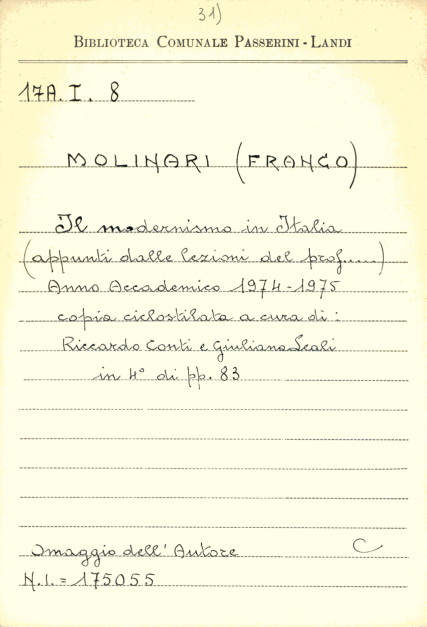 31)
BIBLIOTECA COMUNALE PASSERINI - LANDI
17A. I. 8
MOLINARI (FRANCO)
Il modernismo in Italia
(appunti dalle lezioni del prof.....)
Anno Accademico 1974-1975
copia ciclostilata a cura di:
Riccardo Conti e Giuliana Scali
in 4° di pp. 83
Omaggio dell'Autore C
N.I. = 175055